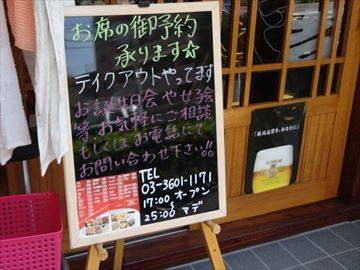 お席の御予約
承ります☆
テイクアウトやってます
お誕生日会や女子会
等お気軽にご相談
もしくはお電話にて
お問い合わせ下さい!!
TEL
03-3601-1171
17:00 オープン
~
25:00 マデ
「最高品質を、あなたに」